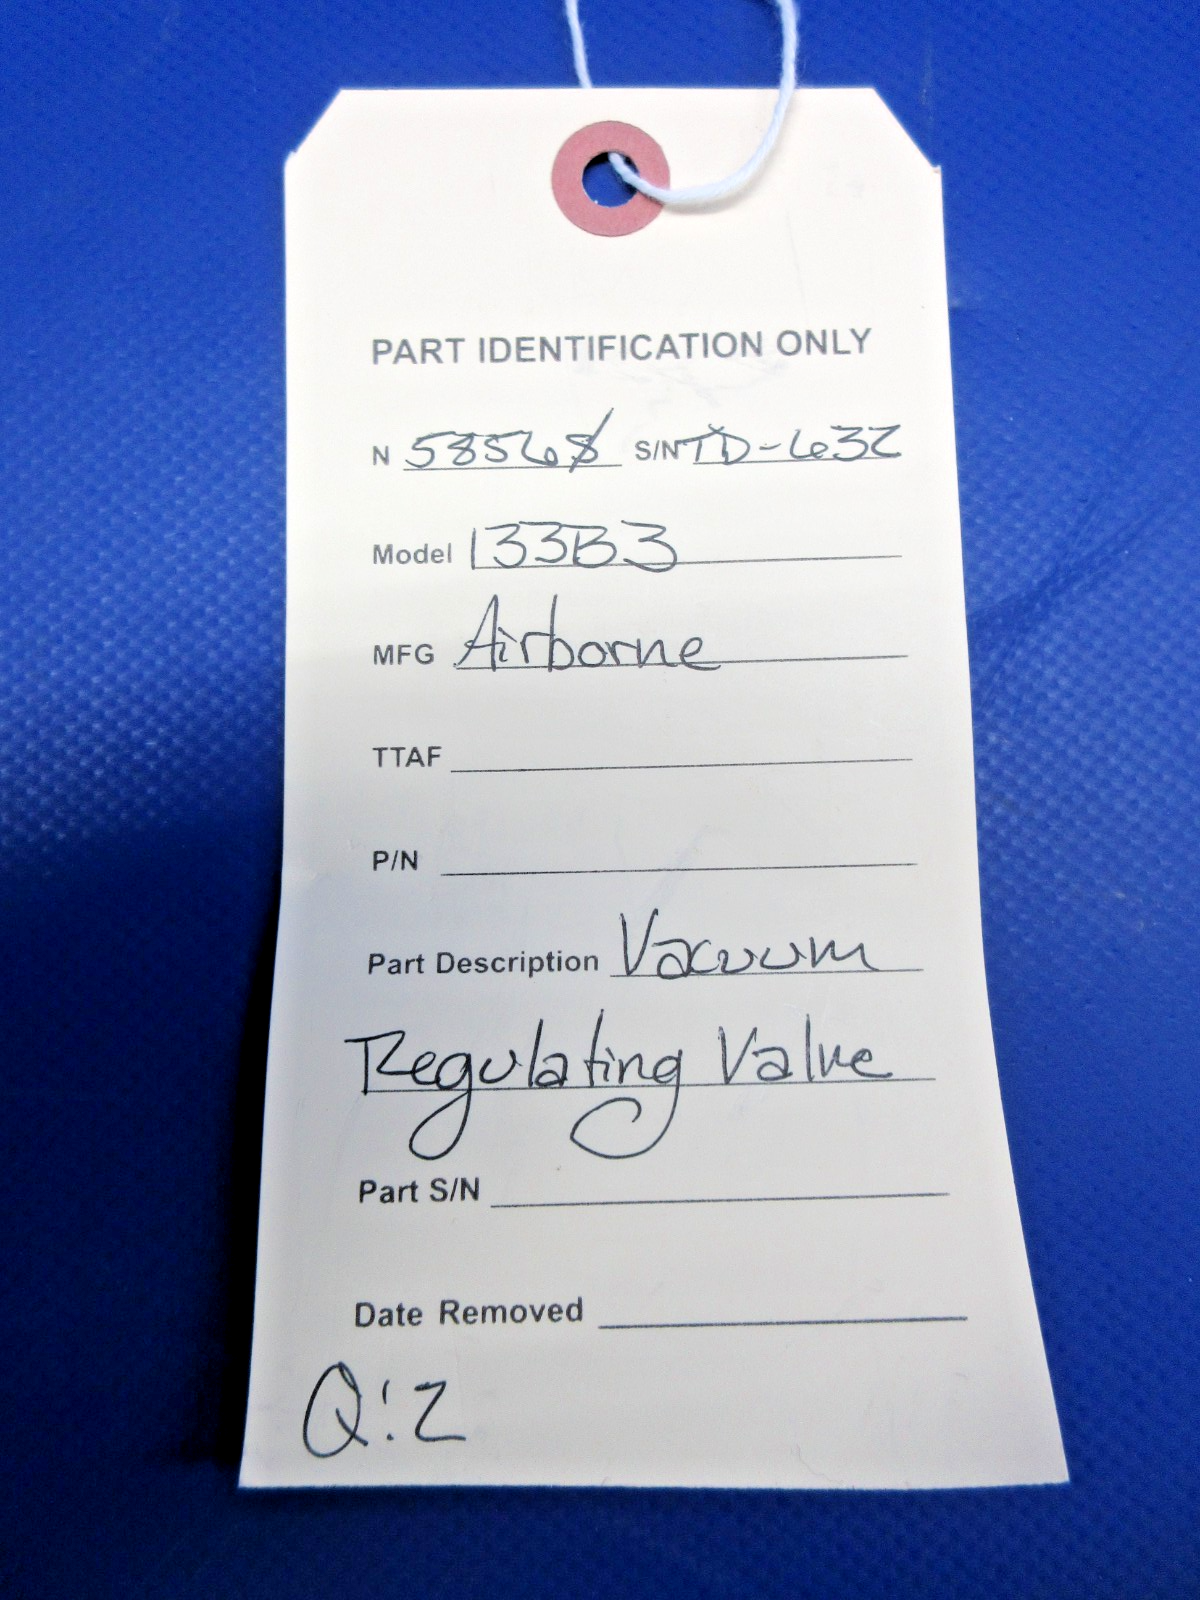 PART IDENTIFICATION ONLY
N 58568 S/N TD-632
Model 133B3
MFG Airborne
TTAF
P/N
Part Description Vacuum
Regulating Valve
Part S/N
Date Removed
Q:2